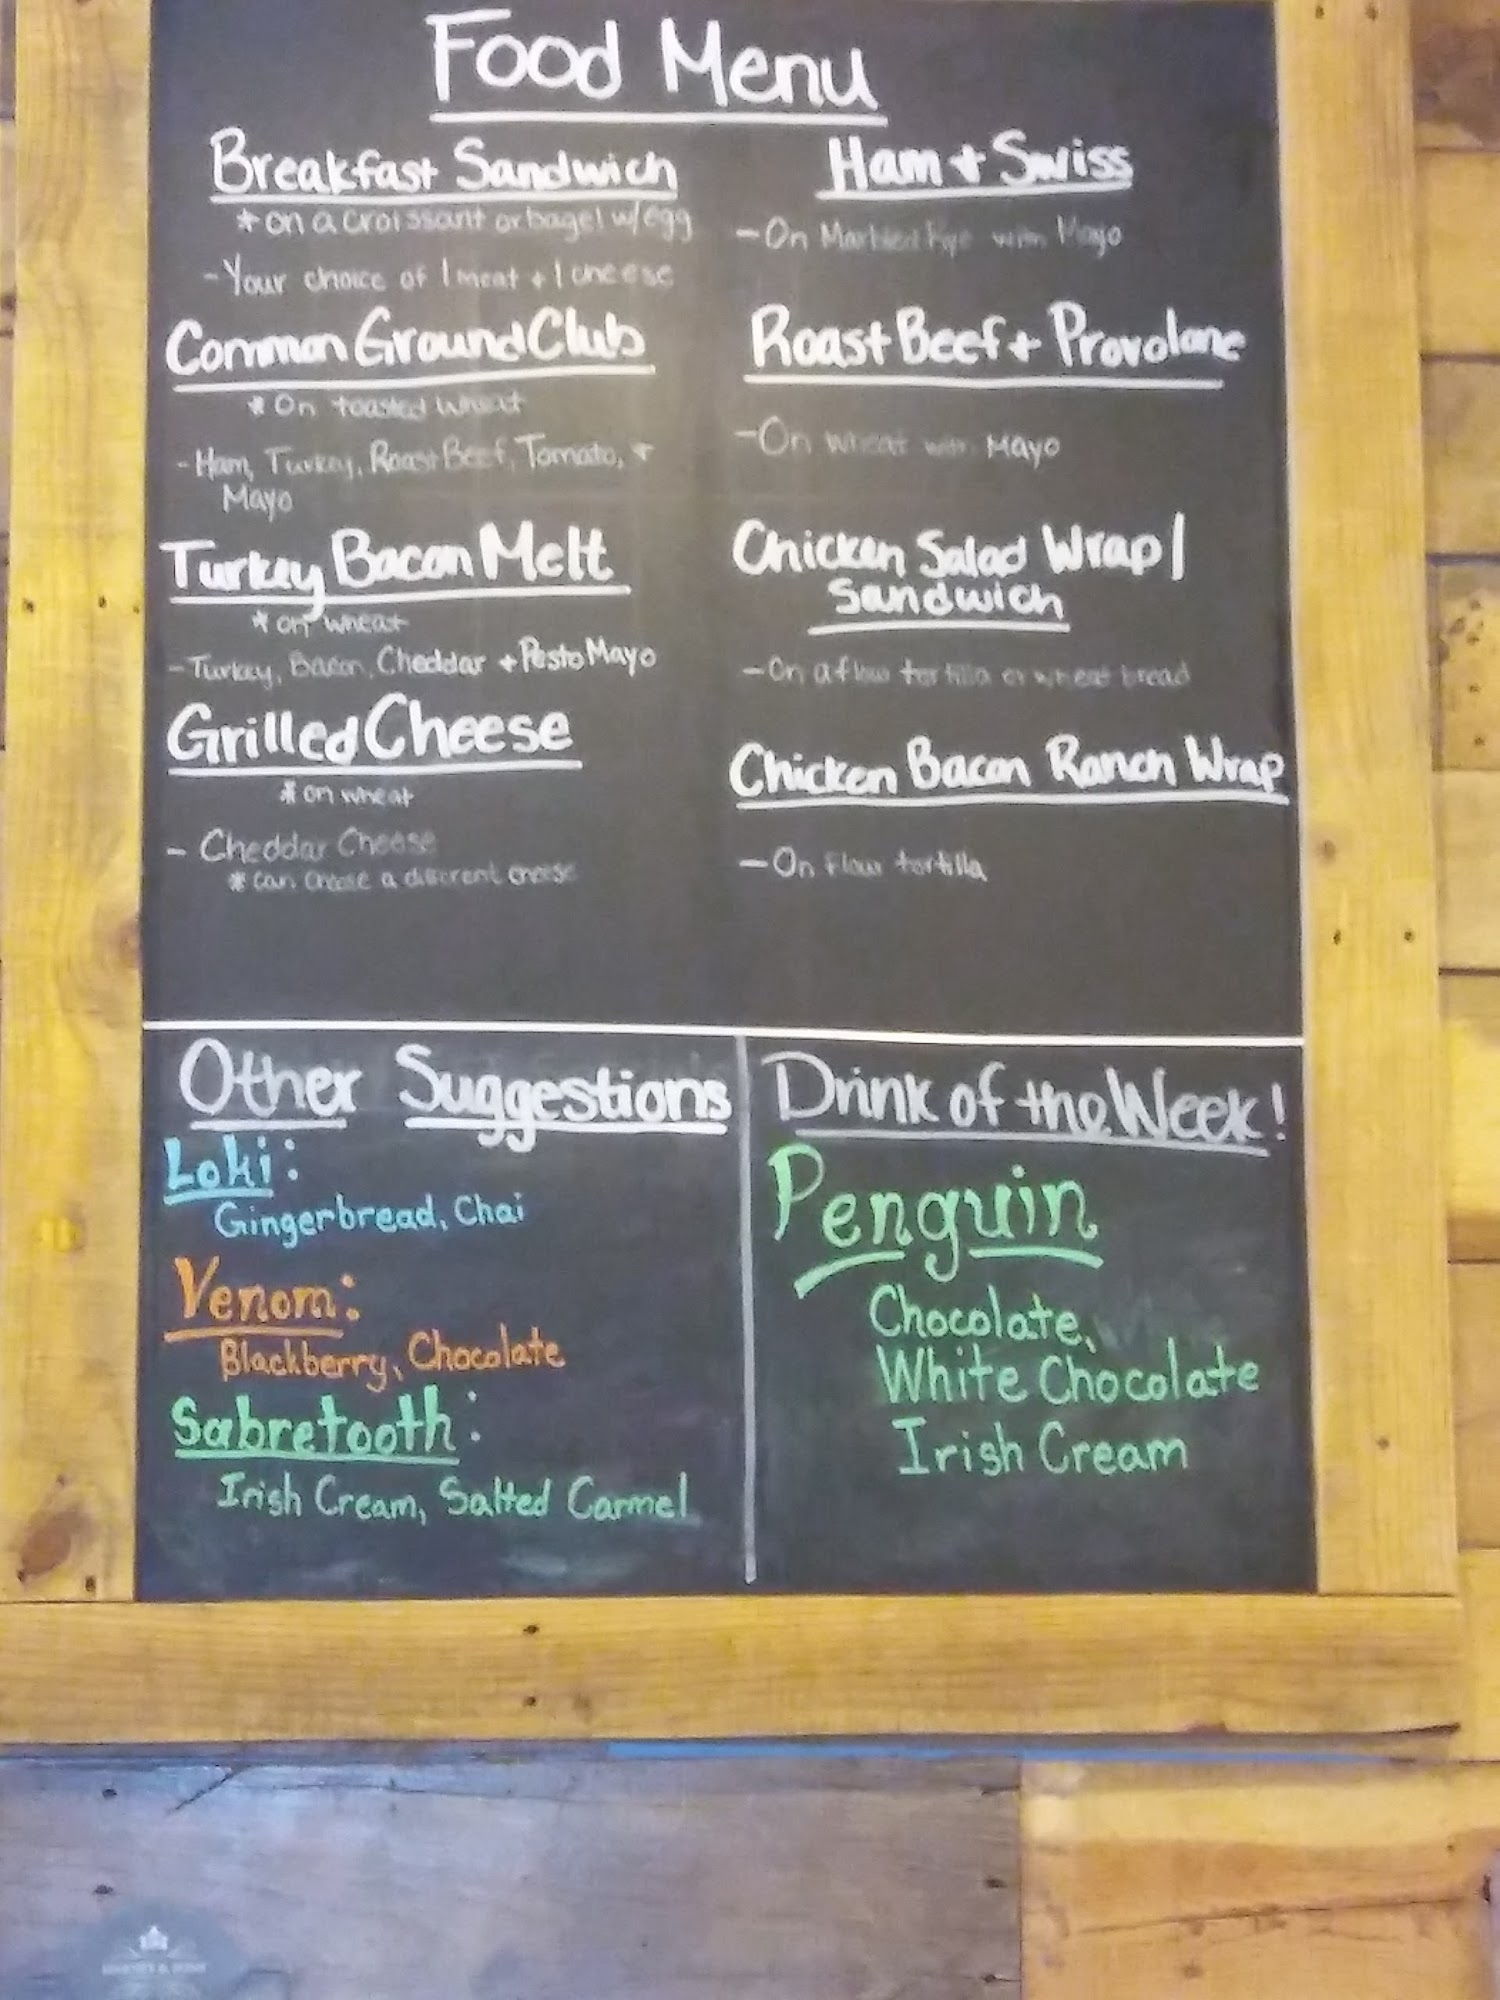 Food Menu
Breakfast Sandwich
* on a croissant or bagel w/egg
- Your choice of 1 meat + 1 cheese
Common Ground Club
* On toasted wheat
- Ham, Turkey, Roast Beef, Tomato, +
Mayo
Turkey Bacon Melt
* on wheat
- Turkey, Bacon, Cheddar + Pesto Mayo
Grilled Cheese
* on wheat
- Cheddar Cheese
* can choose a different cheese
Ham + Swiss
- On Marbled Rye with Mayo
Roast Beef + Provolone
- On wheat with Mayo
Chicken Salad Wrap/
Sandwich
- On a flour tortilla or wheat bread
Chicken Bacon Ranch Wrap
- On flour tortilla
Other Suggestions
Loki:
Gingerbread, Chai
Venom:
Blackberry, Chocolate
Sabretooth:
Irish Cream, Salted Carmel
Drink of the Week!
Penguin
Chocolate,
White Chocolate
Irish Cream